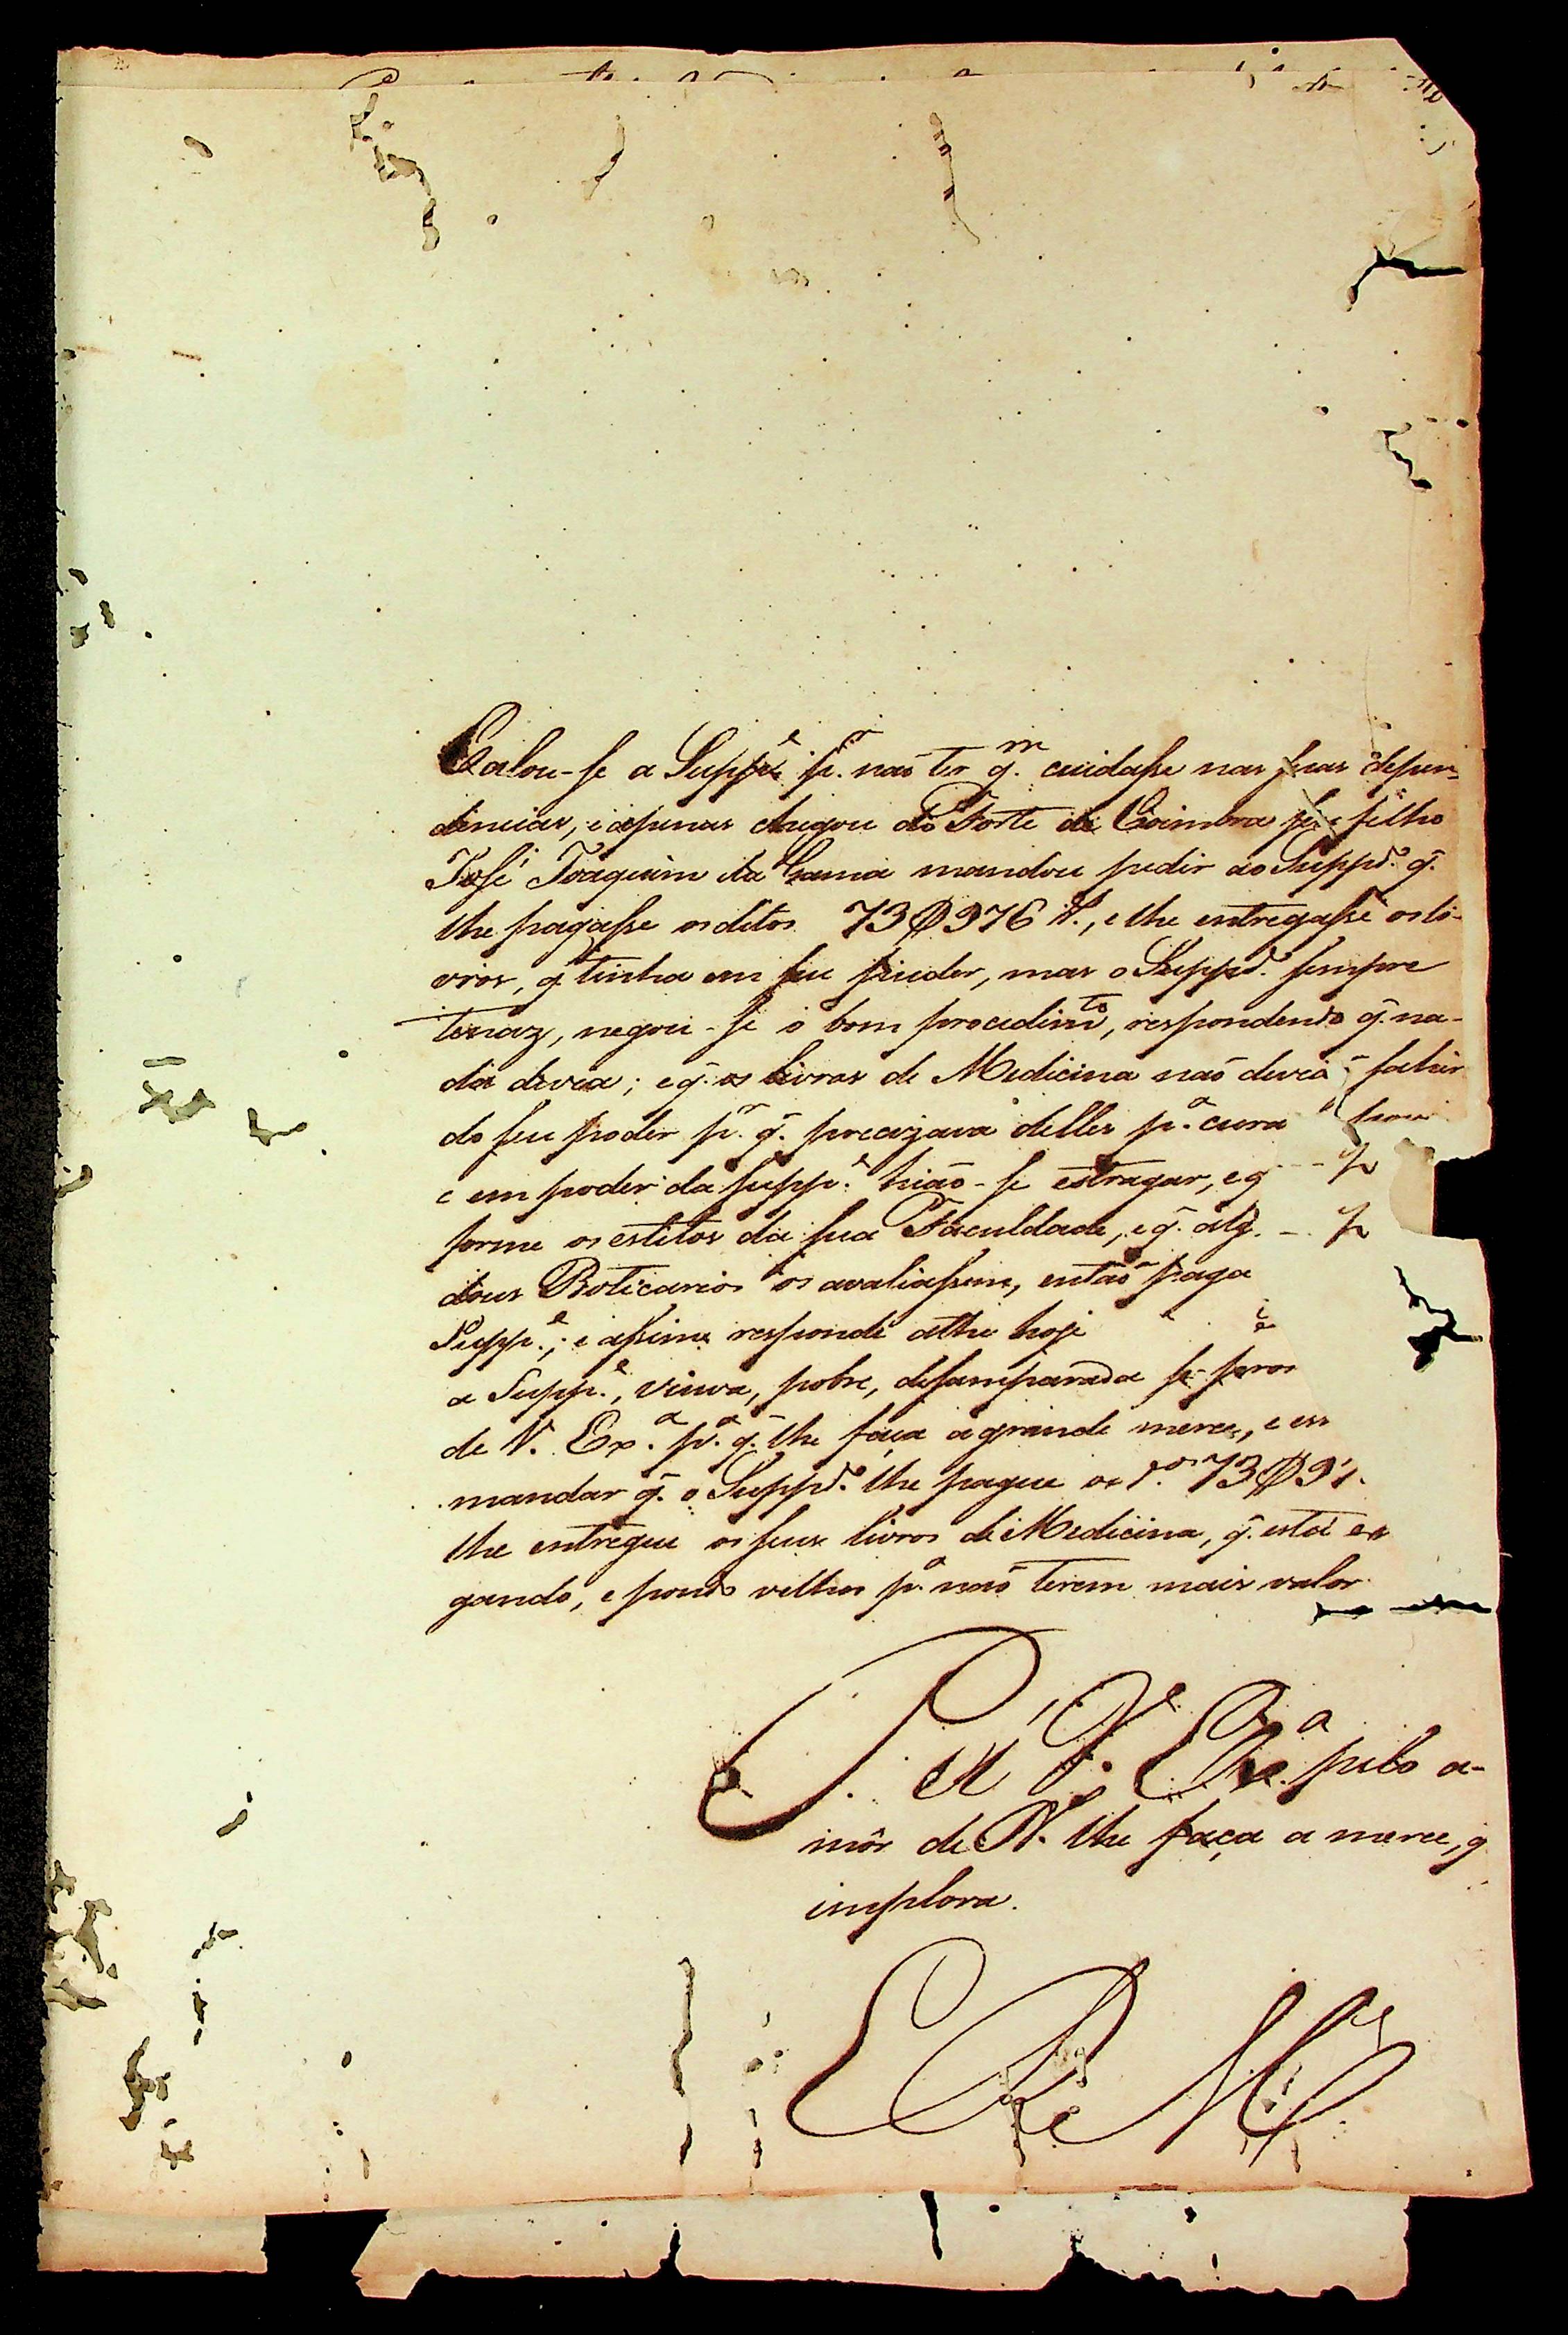 Calou-se a Supp.e p.r naõ ter q.m cuidasse nas suas depen-
dencias, e apenas chegou do Forte de Coimbra seu filho
José Joaquim da Gama mandou pedir ao Supp.do q̃.
lhe pagasse os ditos 73$976 r.s, e lhe entregasse os li-
vros, q̃ tinha em seu puder, mas o Supp.do sempre
tenaz, negou-se o bom procedim.to, respondendo q̃. na-
da devia; e q̃. os livros de Medicina naõ deviaõ sahir
do seu poder p.r q̃. precizava delles p.a cura
e em poder da supp.e hiaõ-se estragar, e q
forme os estilos da sua Faculdade, e q̃.
dous Boticarios os avaliassem, entaõ paga
Supp.e; e assim responde athe hoje
a Supp.e, viuva, pobre, desamparada
de V. Ex.a p.a q̃. lhe faça a grande merce, e em
mandar q̃. o Supp.do lhe pague os d.os 73$97
lhe entregue os seus livros de Medicina, q̃. está es
gando, e pondo velhos p.a naõ terem mais valor
P. a V. Ex.a pelo a-
môr de D.s lhe faça a merce, q
implora.
E R M.ce